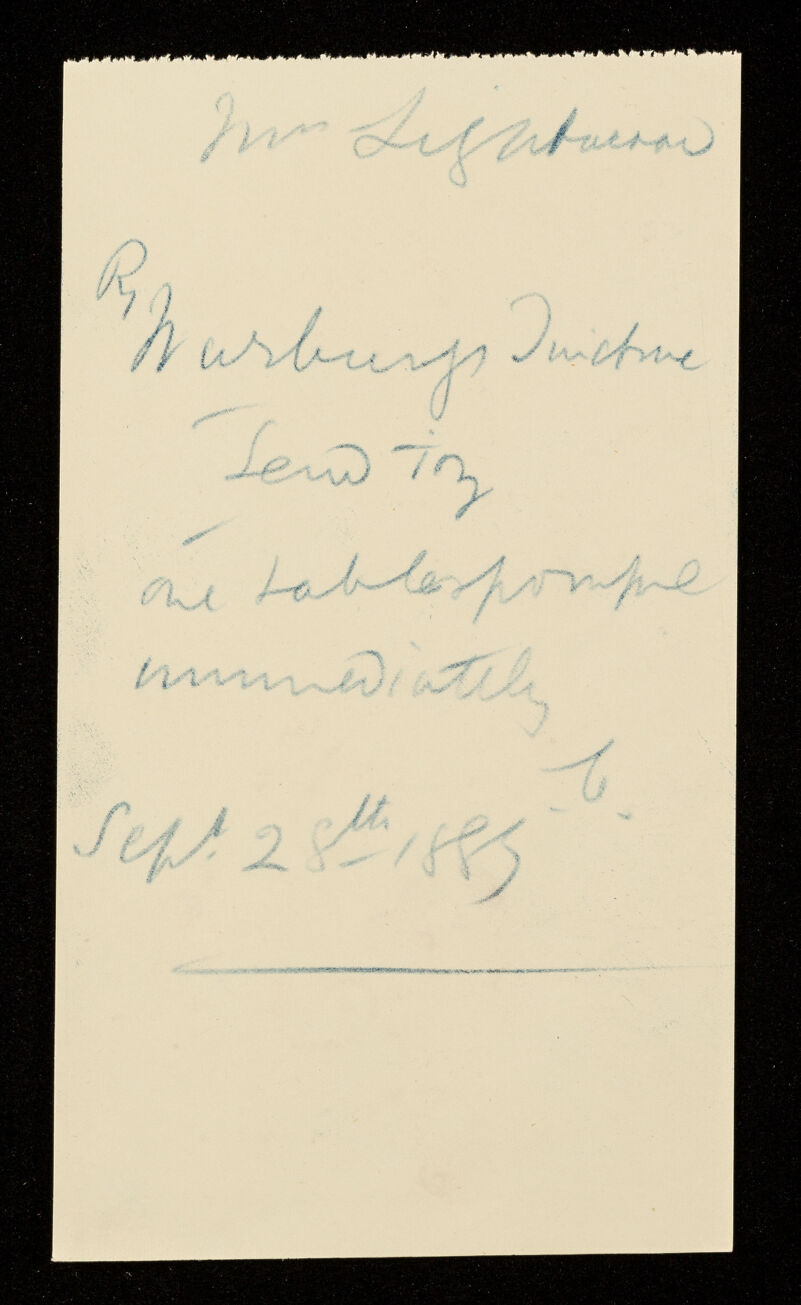 Mrs Lightwood
Rx
Warburgs Tincture
Send ℥
one tablespoonful
immediately
C.
Septr. 28th 1885